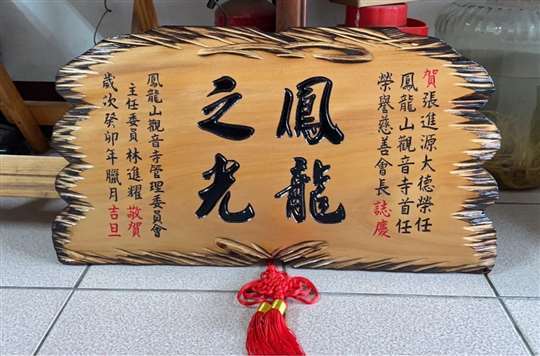 賀張進源大德榮任
鳳龍山觀音寺首任
榮譽慈善會長誌慶
鳳龍
之光
鳳龍山觀音寺管理委員會
主任委員林進耀敬賀
歲次癸卯年臘月吉旦